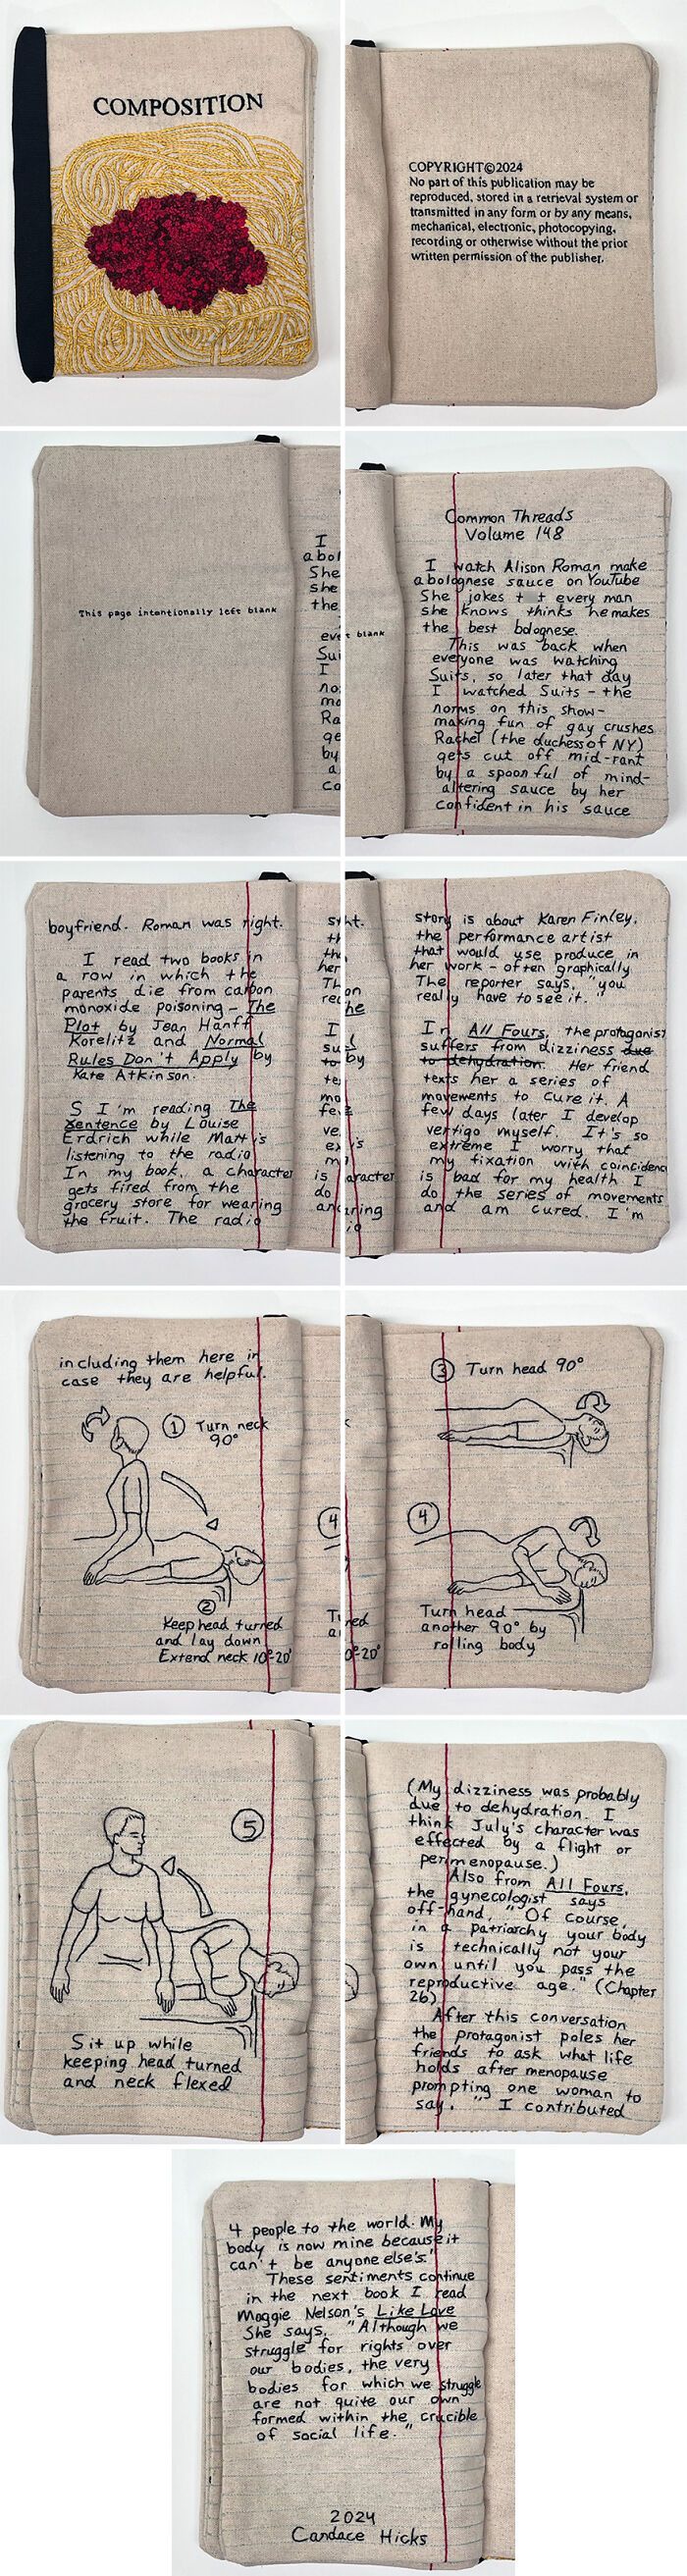 COMPOSITION
COPYRIGHT©2024
No part of this publication may be
reproduced, stored in a retrieval system or
transmitted in any form or by any means,
mechanical, electronic, photocopying,
recording or otherwise without the prior
written permission of the publisher.
This page intentionally left blank
Common Threads
Volume 148
I watch Alison Roman make
a bolognese sauce on YouTube
She jokes t t every man
she knows thinks he makes
the best bolognese.
This was back when
everyone was watching
Suits, so later that day
I watched Suits - the
norms on this show-
making fun of gay crushes
Rachel (the duchess of NY)
gets cut off mid-rant
by a spoonful of mind-
altering sauce by her
confident in his sauce
boyfriend. Roman was right.
I read two books in
a row in which the
parents die from carbon
monoxide poisoning - The
Plot by Jean Hanff
Korelitz and Normal
Rules Don't Apply by
Kate Atkinson.
S I'm reading The
Sentence by Louise
Erdrich while Matt is
listening to the radio
In my book, a character
gets fired from the
grocery store for wearing
the fruit. The radio
story is about Karen Finley,
the performance artist
that would use produce in
her work - often graphically
The reporter says, "you
really have to see it."
In All Fours, the protagonist
suffers from dizziness due
to dehydration. Her friend
texts her a series of
movements to cure it. A
few days later I develop
vertigo myself. It's so
extreme I worry that
my fixation with coincidenc
is bad for my health I
do the series of movements
and am cured. I'm
including them here in
case they are helpful.
① Turn neck
90°
②
Keep head turned
and lay down
Extend neck 10°-20°
③ Turn head 90°
④
Turn head
another 90° by
rolling body
⑤
Sit up while
keeping head turned
and neck flexed
(My dizziness was probably
due to dehydration. I
think July's character was
effected by a flight or
perimenopause.)
Also from All Fours,
the gynecologist says
off-hand, "Of course,
in a patriarchy your body
is technically not your
own until you pass the
reproductive age." (Chapter
26)
After this conversation
the protagonist poles her
friends to ask what life
holds after menopause
prompting one woman to
say, "I contributed
4 people to the world. My
body is now mine because it
can't be anyone else's."
These sentiments continue
in the next book I read
Maggie Nelson's Like Love
She says, "Although we
struggle for rights over
our bodies, the very
bodies for which we struggle
are not quite our own
formed within the crucible
of social life."
2024
Candace Hicks